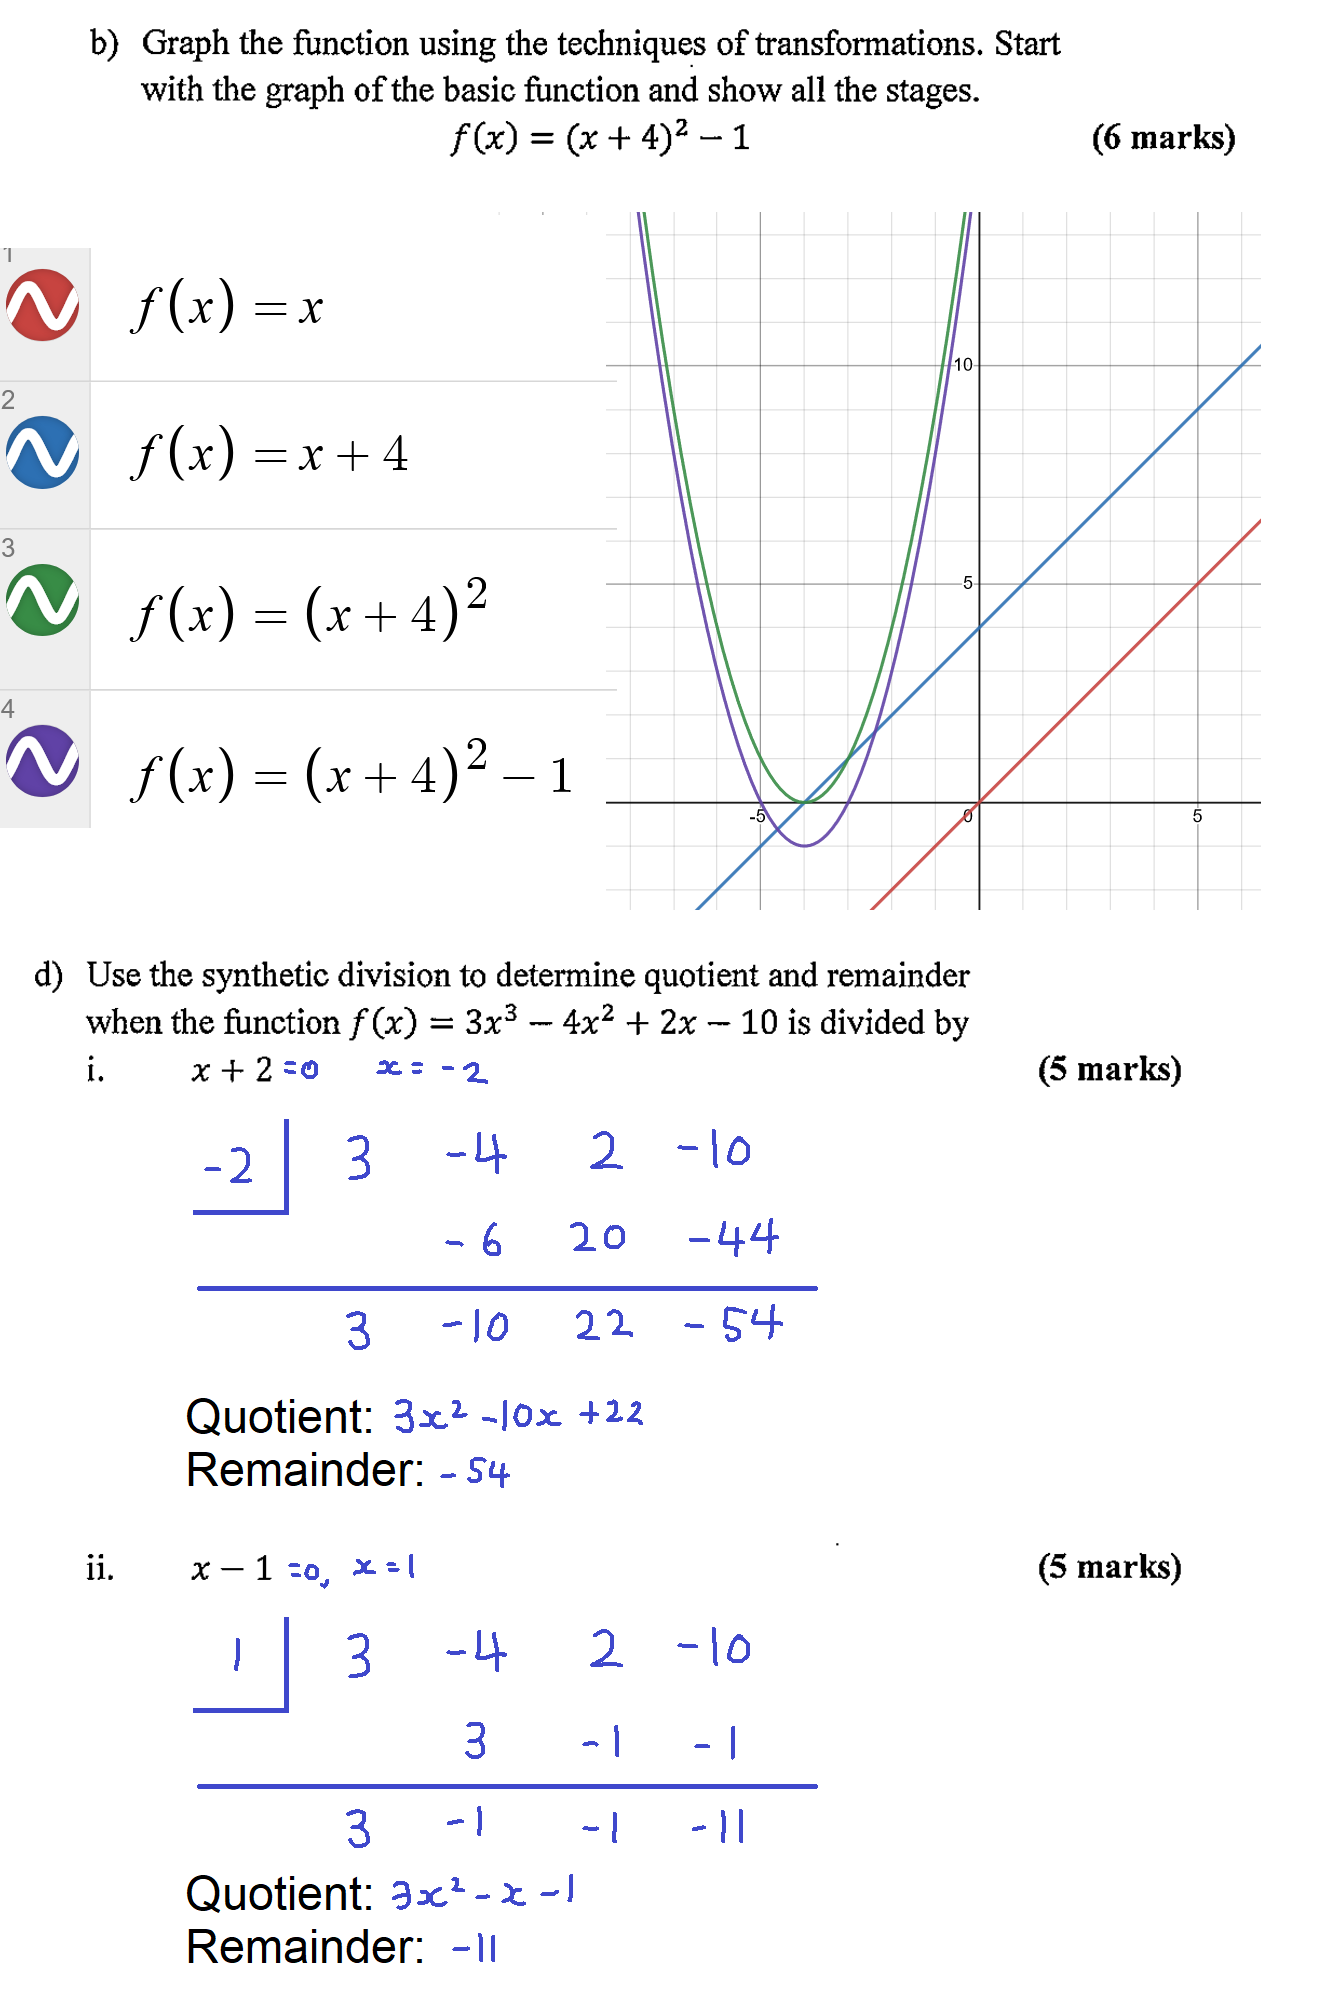 b) Graph the function using the techniques of transformations. Start
with the graph of the basic function and show all the stages.
f(x) = (x + 4)² − 1 (6 marks)
1
f(x) = x
2
f(x) = x + 4
3
f(x) = (x + 4)²
4
f(x) = (x + 4)² − 1
10
5
-5 0 5
d) Use the synthetic division to determine quotient and remainder
when the function f(x) = 3x³ − 4x² + 2x − 10 is divided by
i. x + 2 =0 x = -2 (5 marks)
-2 3 -4 2 -10
-6 20 -44
3 -10 22 -54
Quotient: 3x² -10x +22
Remainder: -54
ii. x − 1 =0, x =1 (5 marks)
1 3 -4 2 -10
3 -1 -1
3 -1 -1 -11
Quotient: 3x² - x -1
Remainder: -11